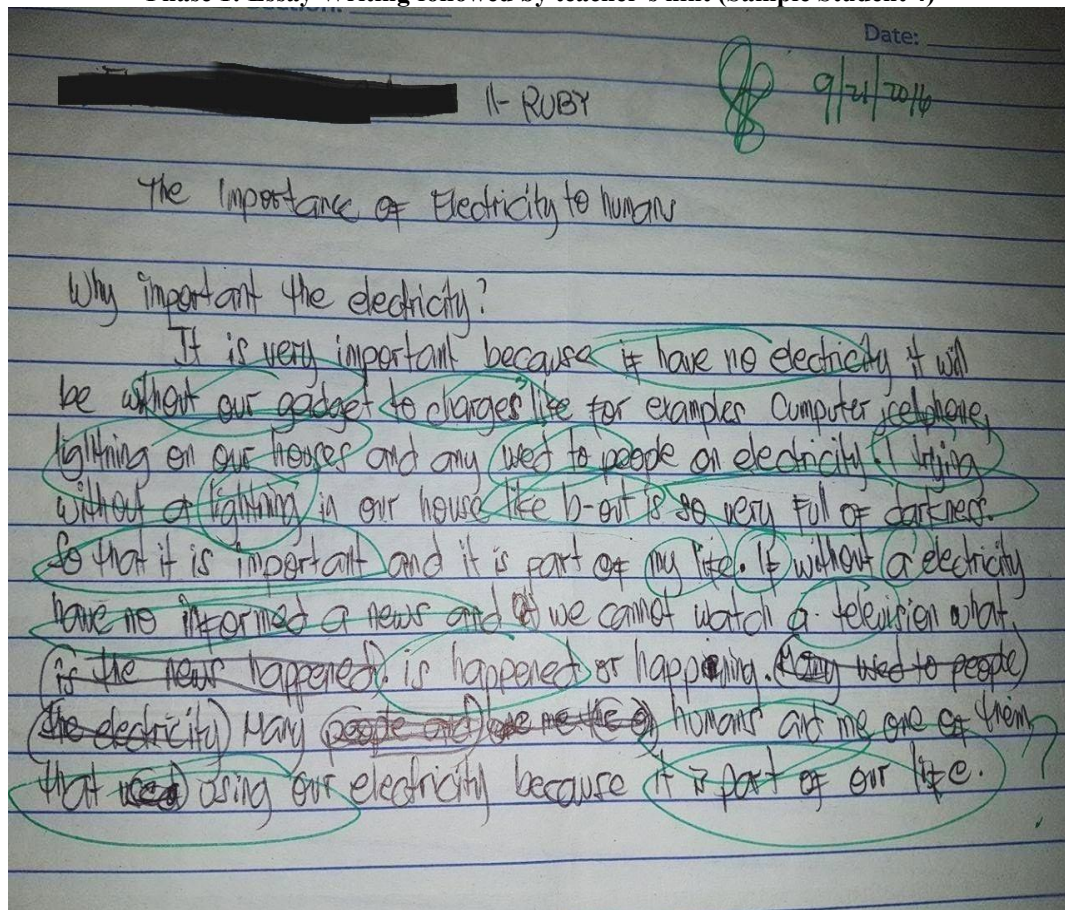 Phase 1: Essay Writing followed by teacher's hint (Sample Student 4)
Date:
11- RUBY
9/21/2016
The Importance of Electricity to human
Why important the electricity?
It is very important because if have no electricity it will
be without our gadget to charges like for examples Cumputer, celphone,
lightning on our houses and any used to people on electricity. I trying
without a lightning in our house like b-out is so very full of darkness.
So that it is important and it is part of my life. If without a electricity
have no informed a news and we cannot watch a television what
is the news happened. is happened or happening. Many used to people
the electricity) Many people and one me the of humans and me one of them
that used using our electricity because it is part of our life. ?